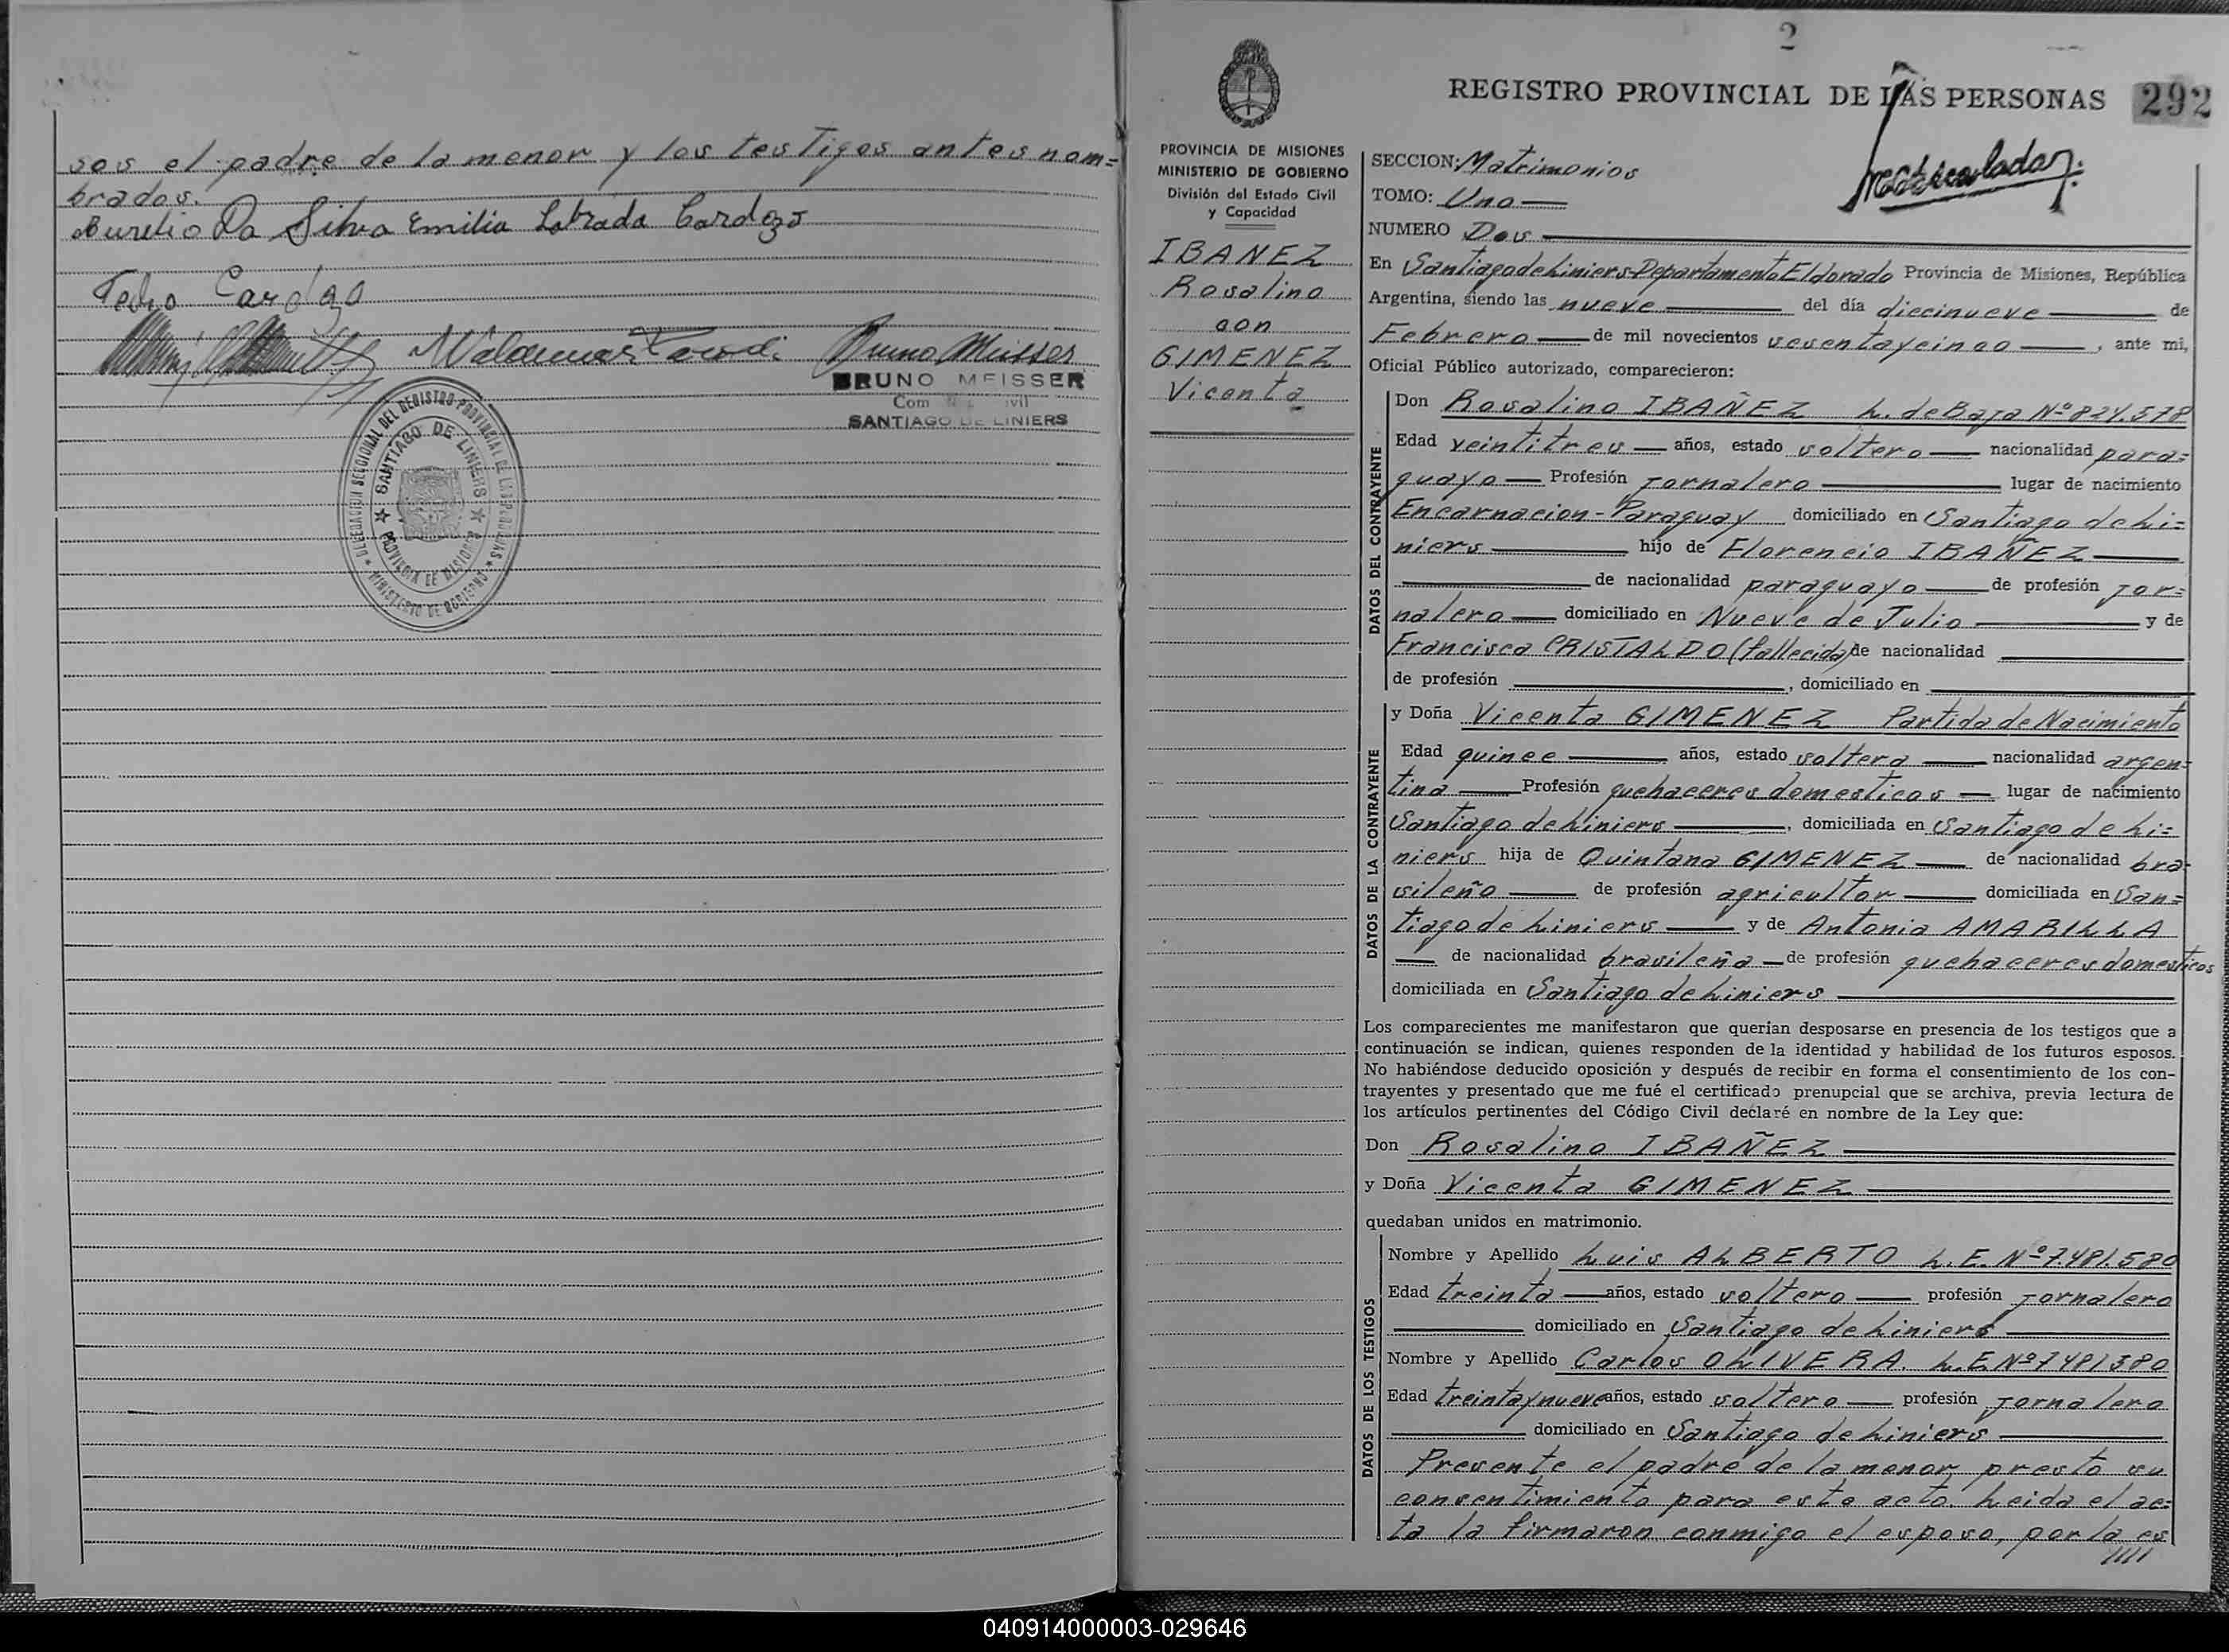 sos el padre de la menor y los testigos antes nom=
brados.
Aurelio Da Silva Emilia Labrada Cardozo
Pedro Cardozo
Bruno Meisser
BRUNO MEISSER
SANTIAGO DE LINIERS
DELEGACION SECCIONAL DEL REGISTRO PROVINCIAL DE LAS PERSONAS
★ MINISTERIO DE GOBIERNO ★
★ SANTIAGO DE LINIERS ★
PROVINCIA DE MISIONES
2
REGISTRO PROVINCIAL DE LAS PERSONAS 292
PROVINCIA DE MISIONES
MINISTERIO DE GOBIERNO
División del Estado Civil
y Capacidad
IBANEZ
Rosalino
con
GIMENEZ
Vicenta
SECCION: Matrimonios
TOMO: Uno
NUMERO Dos
En Santiago de Liniers-Departamento Eldorado Provincia de Misiones, República
Argentina, siendo las nueve del día diecinueve de
Febrero de mil novecientos sesentaycinco, ante mi,
Oficial Público autorizado, comparecieron:
DATOS DEL CONTRAYENTE
Don Rosalino IBAÑEZ L. de Baja Nº 824.578
Edad veintitres años, estado soltero nacionalidad para=
guayo Profesión jornalero lugar de nacimiento
Encarnacion-Paraguay domiciliado en Santiago de Li=
niers hijo de Florencio IBAÑEZ
de nacionalidad paraguayo de profesión jor=
nalero domiciliado en Nueve de Julio y de
Francisca CRISTALDO (fallecida) de nacionalidad
de profesión , domiciliado en
DATOS DE LA CONTRAYENTE
y Doña Vicenta GIMENEZ Partida de Nacimiento
Edad quince años, estado soltera nacionalidad argen=
tina Profesión quehaceres domesticos lugar de nacimiento
Santiago de Liniers, domiciliada en Santiago de Li=
niers hija de Quintana GIMENEZ de nacionalidad bra=
sileño de profesión agricultor domiciliada en San=
tiago de Liniers y de Antonia AMARILLA
de nacionalidad brasileña de profesión quehaceres domesticos
domiciliada en Santiago de Liniers
Los comparecientes me manifestaron que querían desposarse en presencia de los testigos que a
continuación se indican, quienes responden de la identidad y habilidad de los futuros esposos.
No habiéndose deducido oposición y después de recibir en forma el consentimiento de los con-
trayentes y presentado que me fué el certificado prenupcial que se archiva, previa lectura de
los artículos pertinentes del Código Civil declaré en nombre de la Ley que:
Don Rosalino IBAÑEZ
y Doña Vicenta GIMENEZ
quedaban unidos en matrimonio.
DATOS DE LOS TESTIGOS
Nombre y Apellido Luis ALBERTO L.E. Nº 7.481.580
Edad treinta años, estado soltero profesión jornalero
domiciliado en Santiago de Liniers
Nombre y Apellido Carlos OLIVERA L.E. Nº 7481380
Edad treintaynueve años, estado soltero profesión jornalero
domiciliado en Santiago de Liniers
Presente el padre de la menor presto su
consentimiento para este acto. Leida el ac=
ta la firmaron conmigo el esposo, por la es
////
040914000003-029646